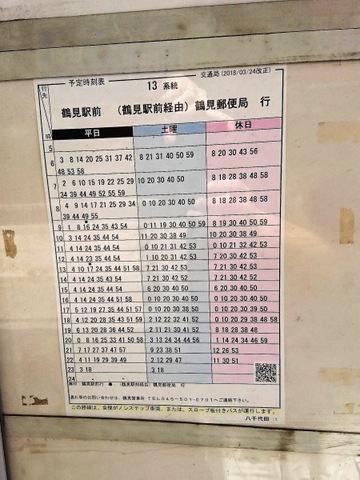 予定時刻表 13 系統 交通局 (2018/03/24改正)
行先
鶴見駅前 (鶴見駅前経由) 鶴見郵便局 行
時 平日 土曜 休日
5
6 3 8 14 20 25 31 37 42 8 21 31 40 50 59 8 20 30 43 56
48 53 58
7 2 6 10 15 19 22 25 29 10 20 30 40 50 8 18 28 38 48 58
34 39 44 49 52 55 59
8 4 9 14 17 21 25 29 34 0 10 20 30 40 50 8 18 28 38 48 58
39 44 49 55
9 1 8 16 24 35 43 54 0 11 19 30 40 50 59 8 19 30 40 50 59
10 3 14 24 35 44 54 11 20 30 39 49 11 20 30 39 49
11 4 14 24 35 44 54 0 10 21 31 42 53 0 10 21 32 42 53
12 4 14 23 35 44 54 7 21 30 42 53 7 21 30 42 53
13 4 10 17 24 35 44 51 58 7 21 30 42 53 7 21 30 42 53
14 4 14 24 35 44 54 7 21 30 42 52 7 21 30 42 52
15 4 14 24 35 44 54 6 20 30 40 50 6 20 30 40 50
16 4 14 24 35 44 51 58 0 10 20 30 40 50 0 10 20 30 40 50
17 5 12 19 27 35 44 51 57 0 10 20 30 40 50 0 10 20 30 40 50
18 4 12 20 28 35 43 51 59 2 12 22 32 42 52 0 10 20 29 38 48 58
19 6 13 20 28 36 44 52 2 11 21 30 41 52 8 18 28 38 48
20 0 8 16 25 33 41 50 58 3 13 24 34 46 58 1 14 24 34 46 59
21 7 17 27 37 47 57 9 23 38 51 12 26 53
22 4 11 19 29 39 49 2 12 29 47 11 30 51
23 3 18 3 18
24
忘れ物のお問い合わせは、鶴見営業所 TEL045-501-0791へご連絡下さい。
この路線は、全便がノンステップ車両、または、スロープ板付きバスが運行します。
八千代田